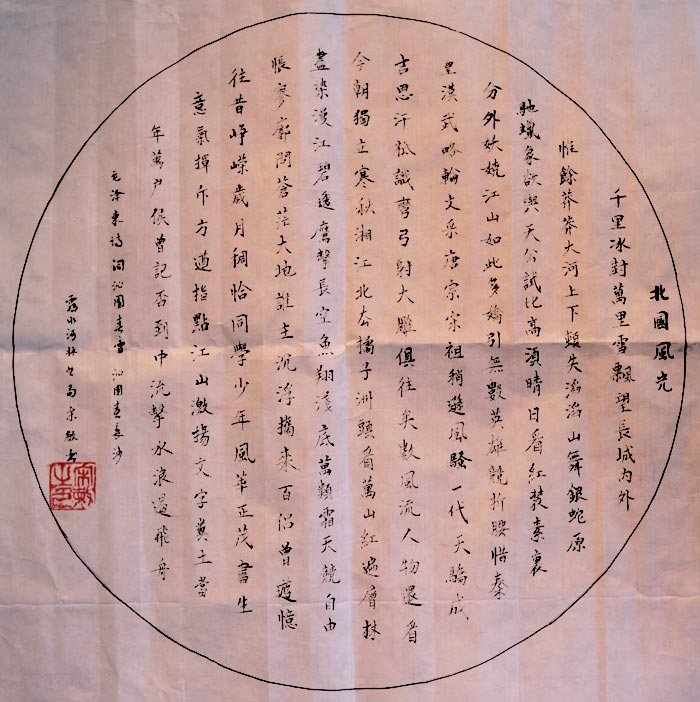 北國風光
千里冰封萬里雪飄望長城内外
惟餘莽莽大河上下頓失滔滔山舞銀蛇原
馳蠟象欲與天公試比高須晴日看紅裝素裹
分外妖嬈江山如此多嬌引無數英雄競折腰惜秦
皇漢武略輸文采唐宗宋祖稍遜風騷一代天驕成
吉思汗祇識彎弓射大雕俱往矣數風流人物還看
今朝獨立寒秋湘江北去橘子洲頭看萬山紅遍層林
盡染漫江碧透鷹擊長空魚翔淺底萬類霜天競自由
悵寥廓問蒼茫大地誰主沉浮攜來百侶曾遊憶
往昔崢嶸歲月稠恰同學少年風華正茂書生
意氣揮斥方遒指點江山激揚文字糞土當
年萬戶侯曾記否到中流擊水浪遏飛舟
毛澤東詩詞沁園春雪沁園春長沙
露水河林業局宋敏書